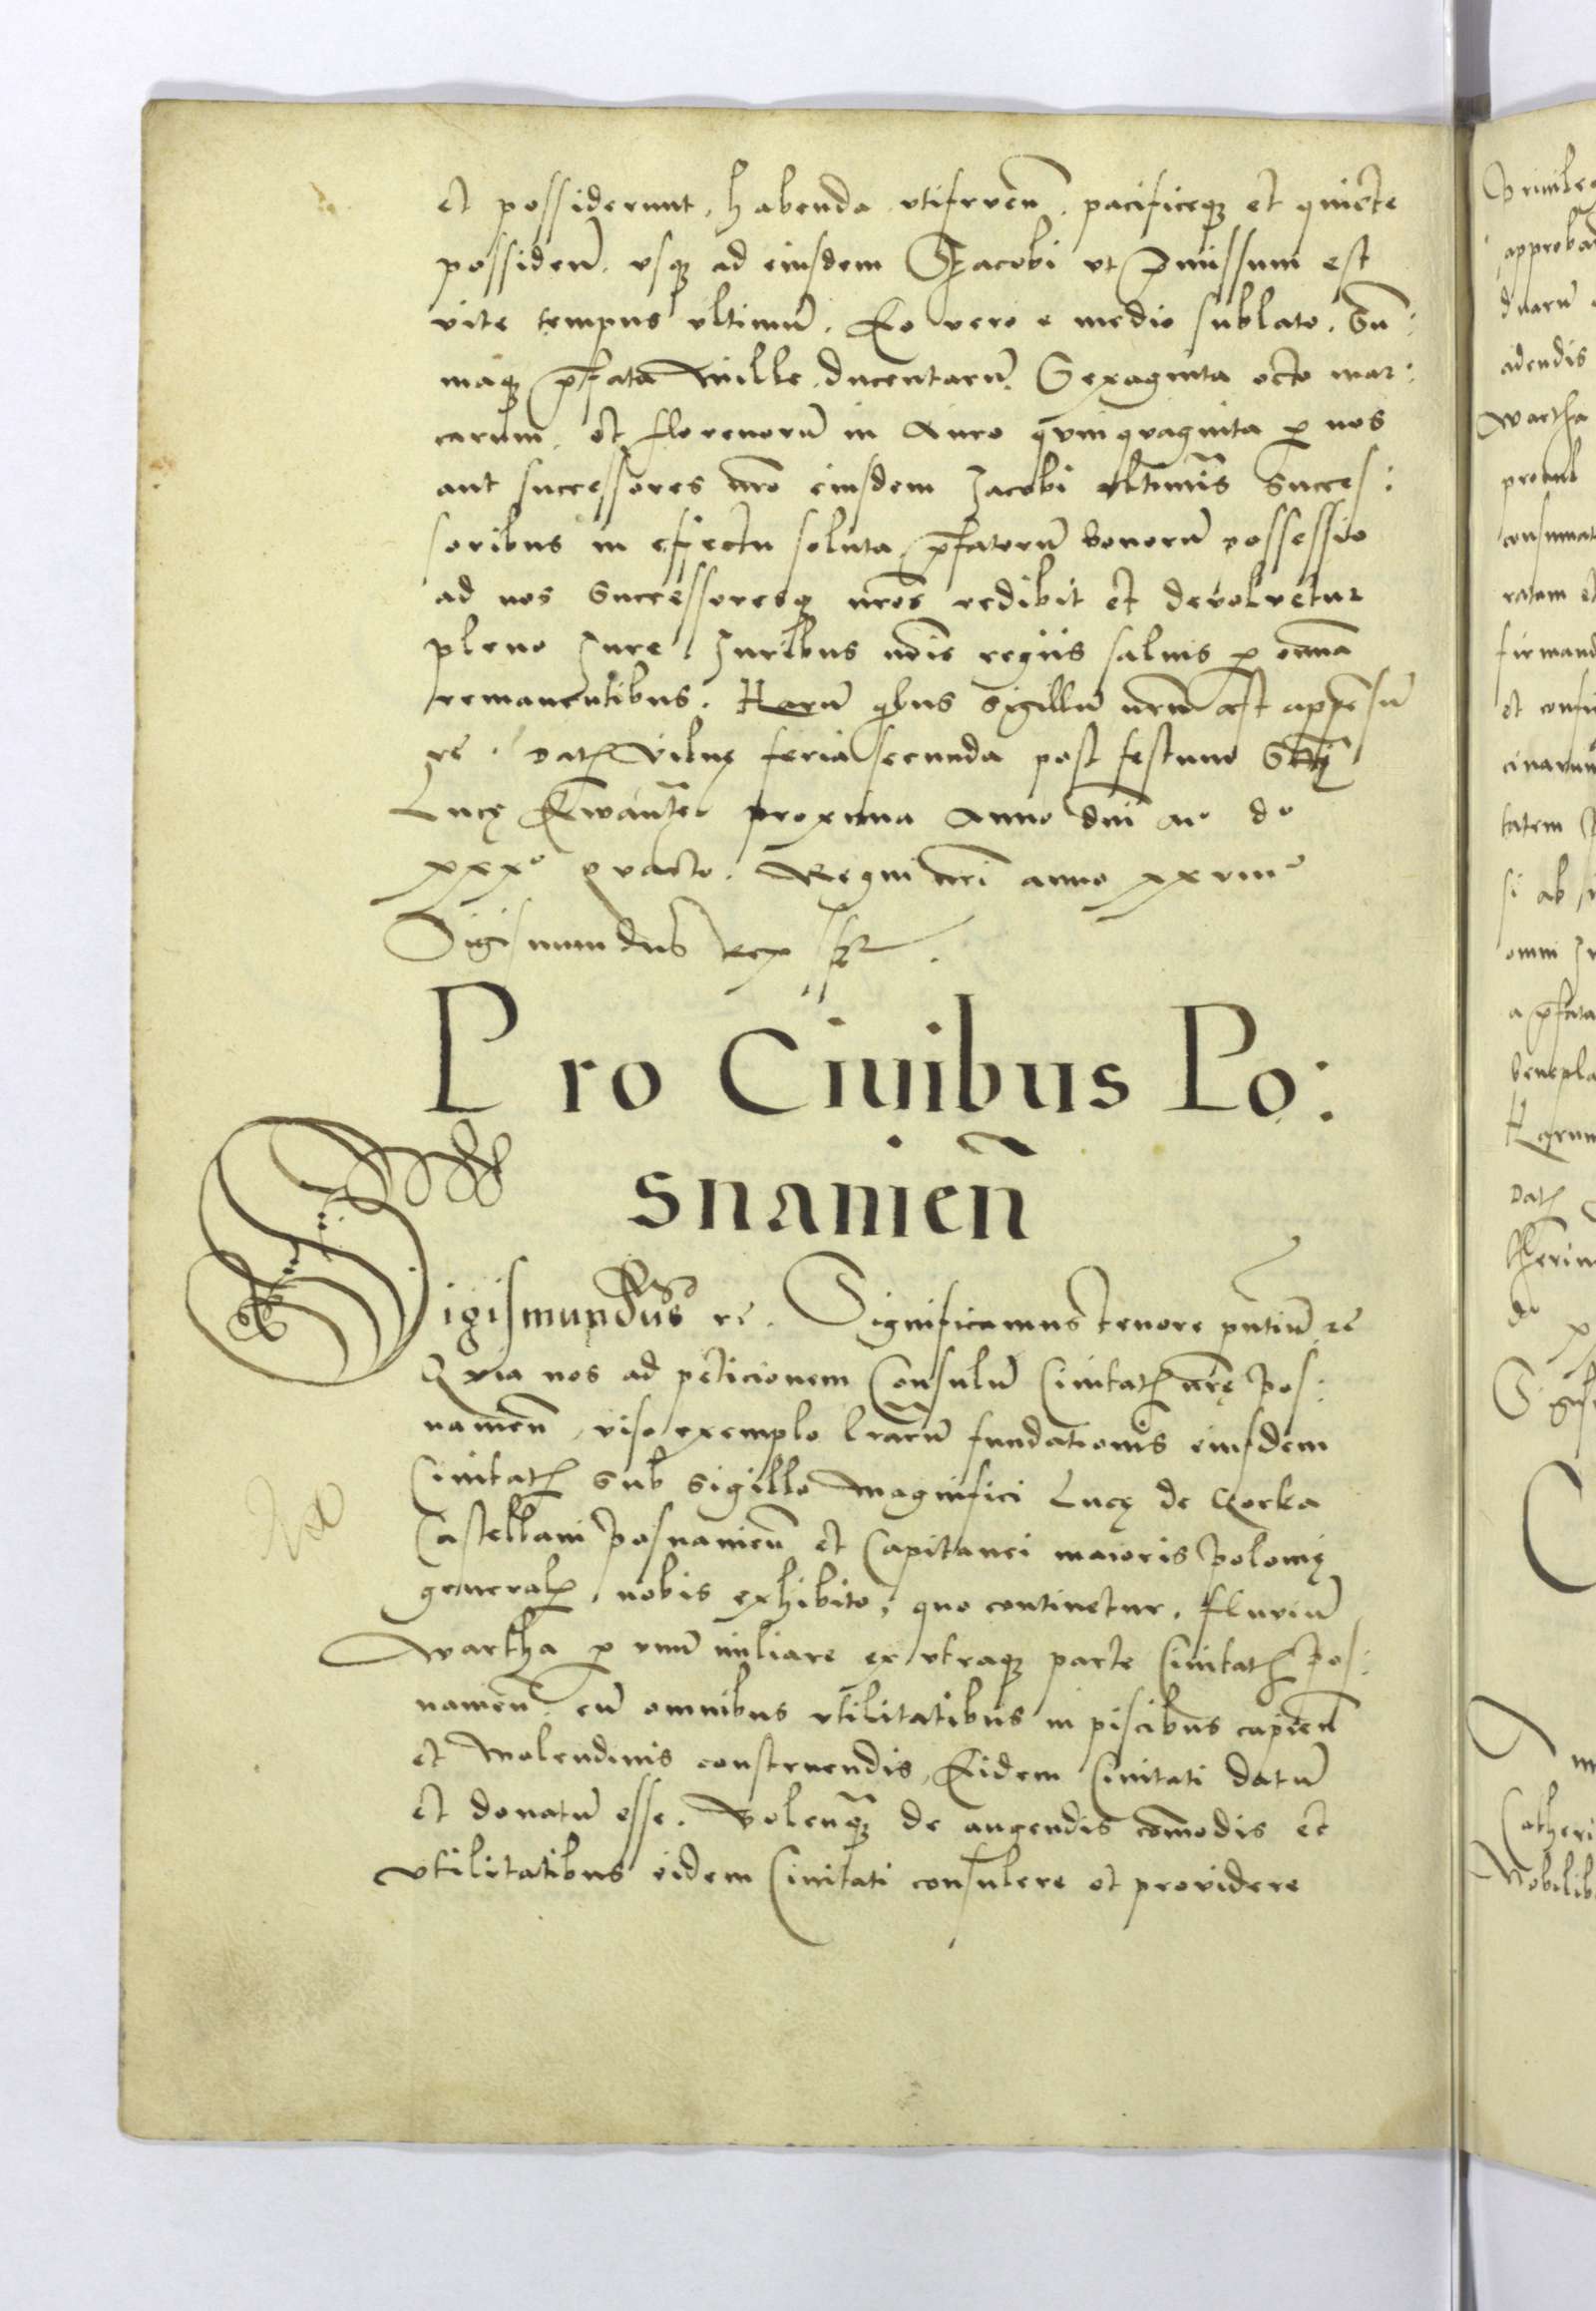 et possiderunt, habenda vtifruen̄. pacificeqȝ et quiete
possiden̄. vsqȝ ad eiusdem Jacobi vt p̄missum est
vite tempus vltimū. Eo vero e medio sublato. Sū:
maqȝ p̄fata Mille ducentarū. Sexaginta octo mar:
carum. et florenorū in Auro quinquaginta ꝑ nos
aut successores nr̄o eiusdem Jacobi vltimis succes:
soribus in effectu soluta, p̄fatorū bonorū possessio
ad nos Successoresqȝ nr̄os redibit et devolvetur
pleno Jure. Juribus nr̄is regiis saluis ꝑ om̄ia
remanentibus. Harū qibus sigillū nr̄m est appēsū
rc̄. Datꝭ Vilnę feria secunda post festum Sctī
Lucę Ewan̄te proxima Anno dn̄i mo do
xxxo quarto. Regni nr̄i anno xxviiio
Sigismundus Rex sst.
Pro Ciuibus Po:
snanien̄
Sigismundus rc̄. Significamus tenore pn̄tiū rc̄
Quia nos ad peticionem Consulū Ciuitatꝭ nr̄ę Pos:
nanien̄, viso exemplo lr̄arū fundationis eiusdem
Ciuitatꝭ sub sigillo Magnifici Lucę de Gorka
Castellani Posnanien̄ et Capitanei maioris Polonię
generalꝭ, nobis exhibito, quo continetur. Fluuiū
Wartha ꝑ vnū miliare ex vtraqȝ parte Ciuitatꝭ Pos:
nanien̄. cū omnibus vtilitatibus in piscibus capien̄
et Molendinis construendis, Eidem Ciuitati datū
et donatū esse. Volen̄qȝ de augendis com̄odis et
vtilitatibus eidem Ciuitati consulere et providere
Priuileg
approba
duarū
adendis
Wartha
ratam et
firmand
et confir
tatem
si ab
a p̄fata
benepla
Harum
Datꝭ
Catheri
Nobilib